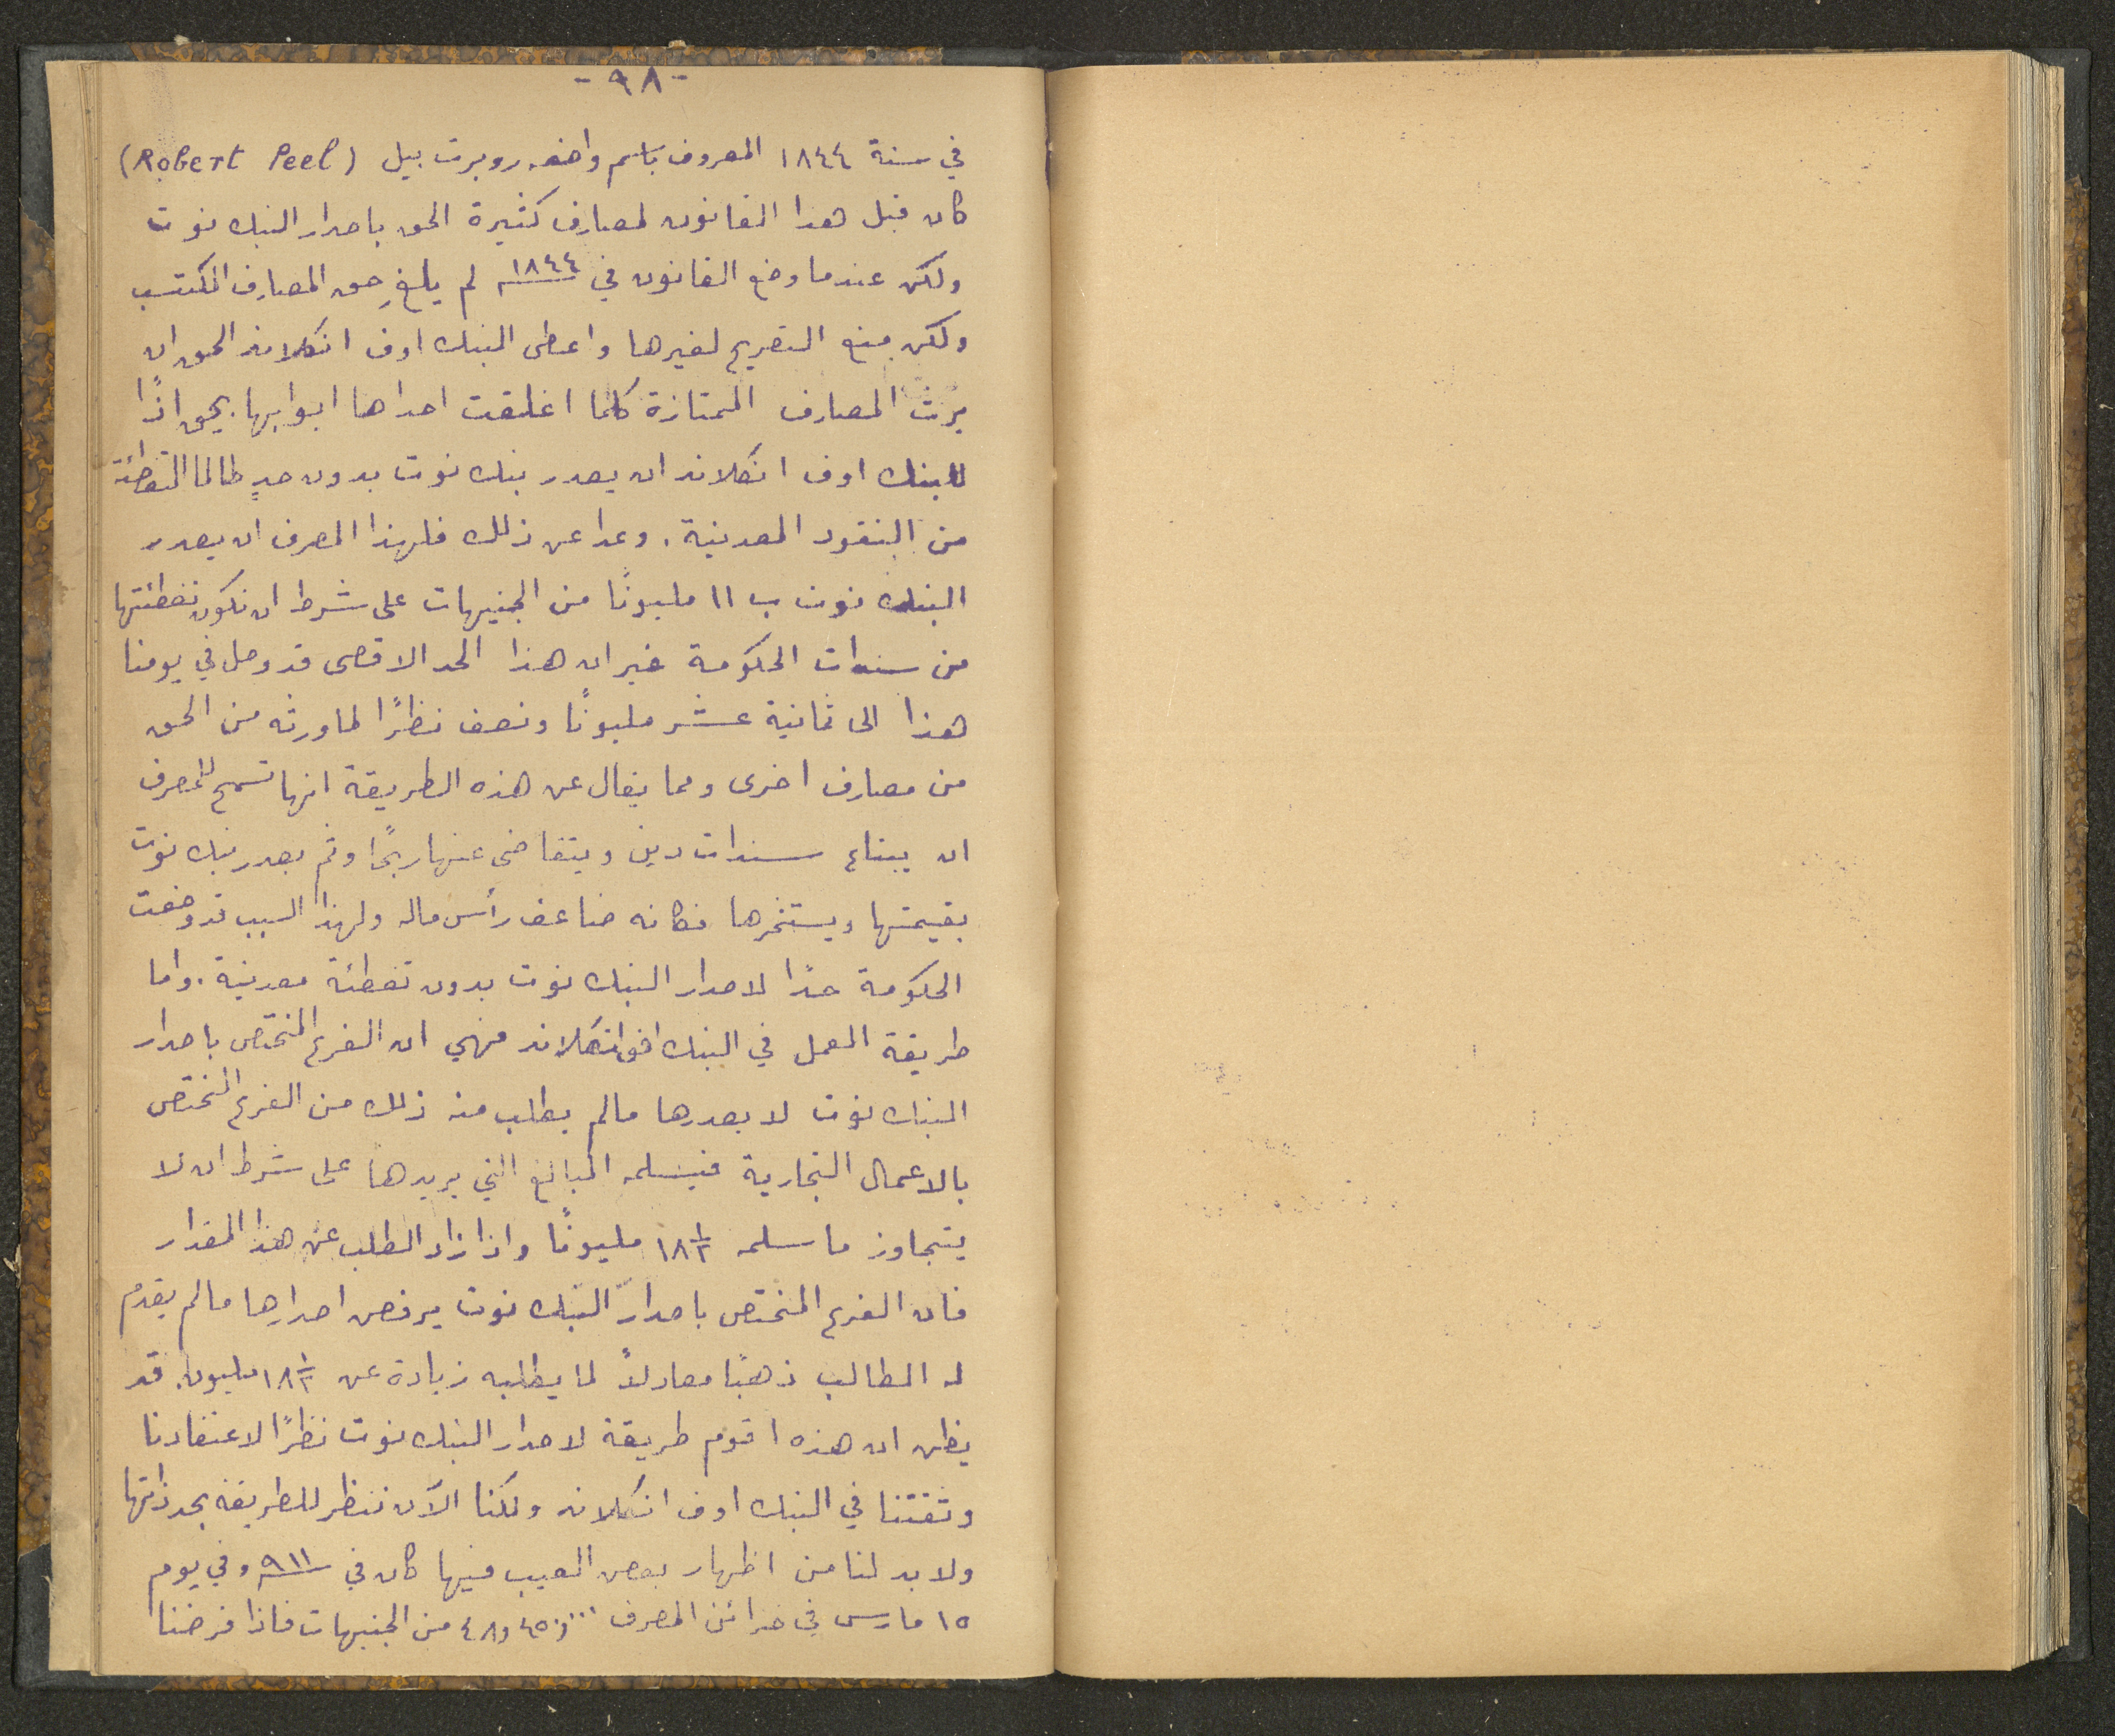 - ٩٨ -
في سنة ١٨٤٤ المعروف باسم واضعه روبرت بيل (Robert Peel)
كان قبل هذا القانون لمصارف كثيرة الحق باصدار البنك نوت
ولكن عندما وضع القانون في ١٨٤٤ لم يلغِ حق المصارف المكتسب
ولكن منع التصريح لغيرها واعطى البنك اوف انكلاند الحق ان
يرث المصارف الممتازة كلما اغلقت احداها ابوابها. يحق اذًا
للبنك اوف انكلاند ان يصدر بنك نوت بدون حدٍ طالما التغطئة
من النقود المعدنية. وعدا عن ذلك فلهذا المصرف ان يصدر
البنك نوت ب ١١ مليونًا من الجنيهات على شرط ان تكون تغطئتها
من سندات الحكومة غير ان هذا الحد الاقصى قد وصل في يومنا
هذا الى ثمانية عشر مليونًا ونصف نظرًا لما ورثه من الحق
من مصارف اخرى ومما يقال عن هذه الطريقة انها تسمح للمصرف
ان يبتاع سندات دين ويتقاضى عنها ربحًا وثم يصدر بنك نوت
بقيمتها ويستثمرها فكانه ضاعف رأس ماله ولهذا السبب قد وضعت
الحكومة حدًا لاصدار البنك نوت بدون تغطئة معدنية. واما
طريقة العمل في البنك اوف انكلاند فهي ان الفرع المختص باصدار
البنك نوت لا يصدرها مالم يطلب منه ذلك من الفرع المختص
بالاعمال التجارية فيسلمه المبالغ التي يريدها على شرط ان لا
يتجاوز ما سلمه ١٨½ مليونًا واذا زاد الطلب عن هذا المقدار
فان الفرع المختص باصدار البنك نوت يرفض اصدارها مالم يقدم
له الطالب ذهبًا معادلاً لما يطلبه زيادة عن ١٨½ مليون. قد
يظن ان هذه اقوم طريقة لاصدار البنك نوت نظرًا لاعتقادنا
وثقتنا في البنك اوف انكلاند ولكنا الآن ننظر للطريقة بحد ذاتها
ولا بد لنا من اظهار بعض العيب فيها كان في ٩١١ وفي يوم
١٥ مارس في خزائن المصرف من الجنيهات فاذا فرضنا